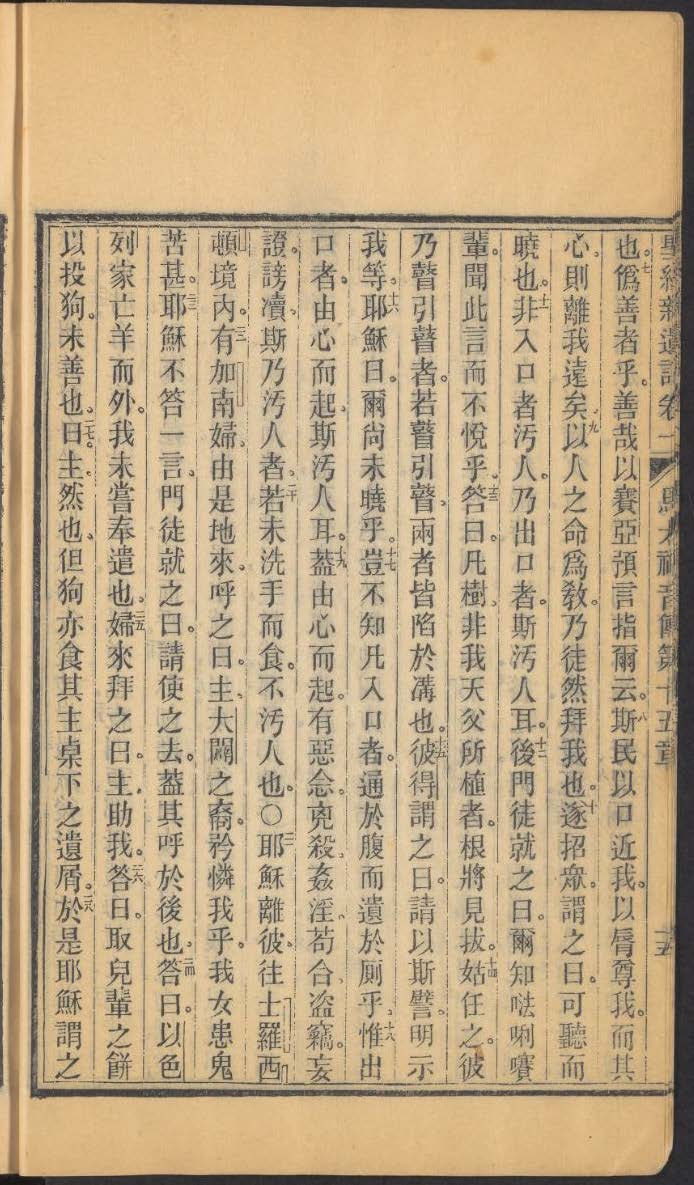 聖經新遺詔卷一 馬太福音傳第十五章 十五
也。七僞善者乎。善哉以賽亞預言指爾云。八斯民以口近我。以脣尊我。而其
心、則離我遠矣。九以人之命爲教。乃徒然拜我也。十遂招眾、謂之曰。可聽而
曉也。十一非入口者汚人。乃出口者。斯汚人耳。十二後門徒就之曰。爾知𠵽唎㘔
輩。聞此言而不悅乎。十三答曰。凡樹、非我天父所植者。根將見拔。十四姑任之。彼
乃瞽引瞽者。若瞽引瞽、兩者皆陷於溝也。十五彼得謂之曰。請以斯譬。明示
我等。十六耶穌曰。爾尙未曉乎。十七豈不知凡入口者。通於腹而遺於厠乎。十八惟出
口者、由心而起、斯汚人耳。十九蓋由心而起。有惡念。兇殺、姦淫、苟合、盜竊。妄
證、謗讟、斯乃汚人者。二十若未洗手而食。不汚人也。〇二一耶穌離彼、往士羅西
頓境內。二二有加南婦、由是地來、呼之曰。主、大闢之裔。矜憐我乎。我女患鬼
苦甚。二三耶穌不答一言。門徒就之曰。請使之去。蓋其呼於後也。二四答曰。以色
列家亡羊而外。我未嘗奉遣也。二五婦來拜之曰。主助我。二六答曰。取兒輩之餅
以投狗。未善也。二七曰。主、然也、但狗亦食其主桌下之遺屑。二八於是耶穌謂之